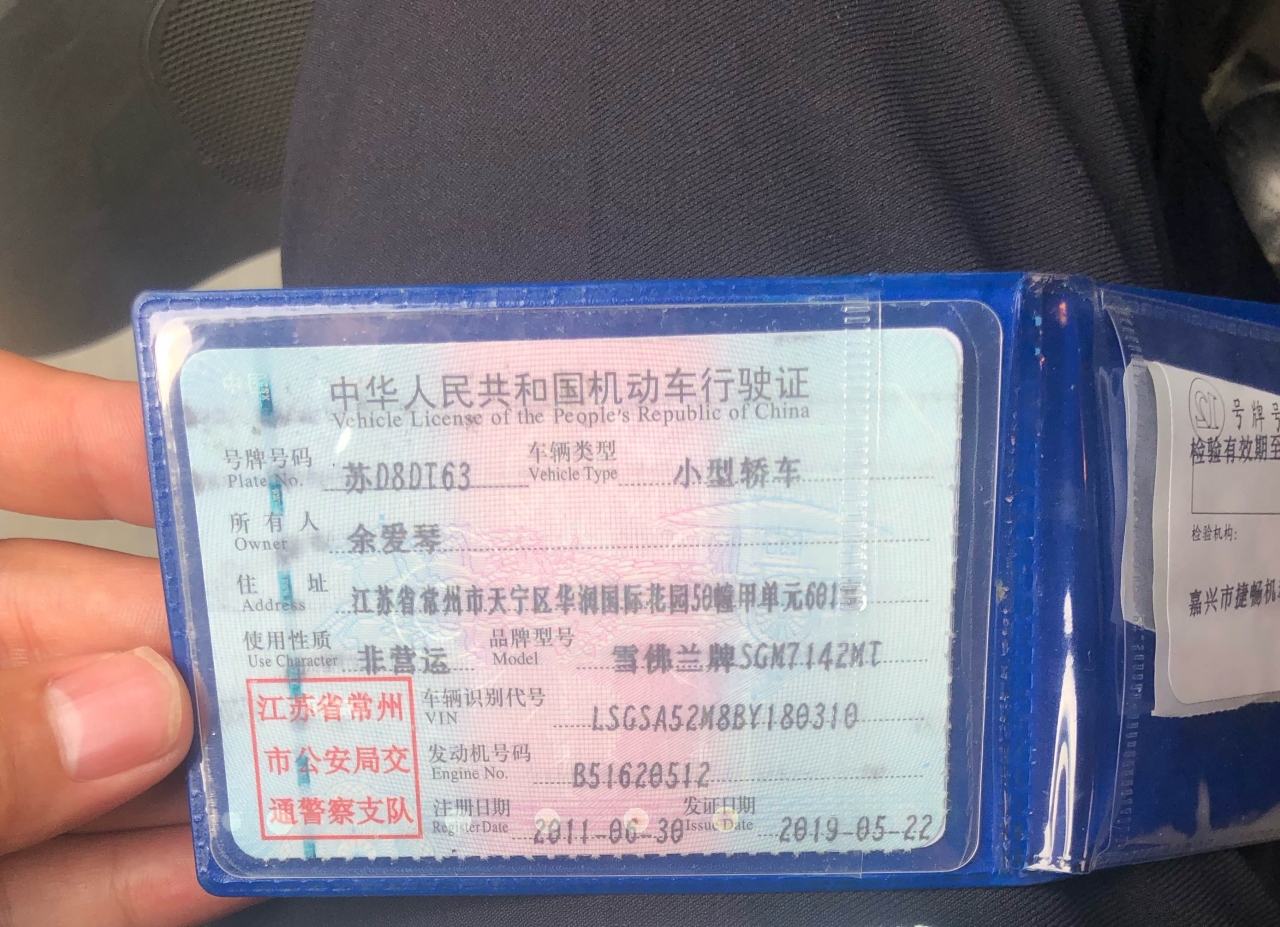 中华人民共和国机动车行驶证
Vehicle License of the People's Republic of China
号牌号码 苏D8DT63 车辆类型 小型轿车
Plate No. Vehicle Type
所有人 余爱琴
Owner
住址 江苏省常州市天宁区华润国际花园50幢甲单元601室
Address
使用性质 非营运 品牌型号 雪佛兰牌SGM7142MT
Use Character Model
车辆识别代号 LSGSA52M8BY180310
VIN
发动机号码 B51620512
Engine No.
注册日期 2011-06-30 发证日期 2019-05-22
Register Date Issue Date
江苏省常州
市公安局交
通警察支队
号牌号
检验有效期至
检验机构:
嘉兴市捷畅机